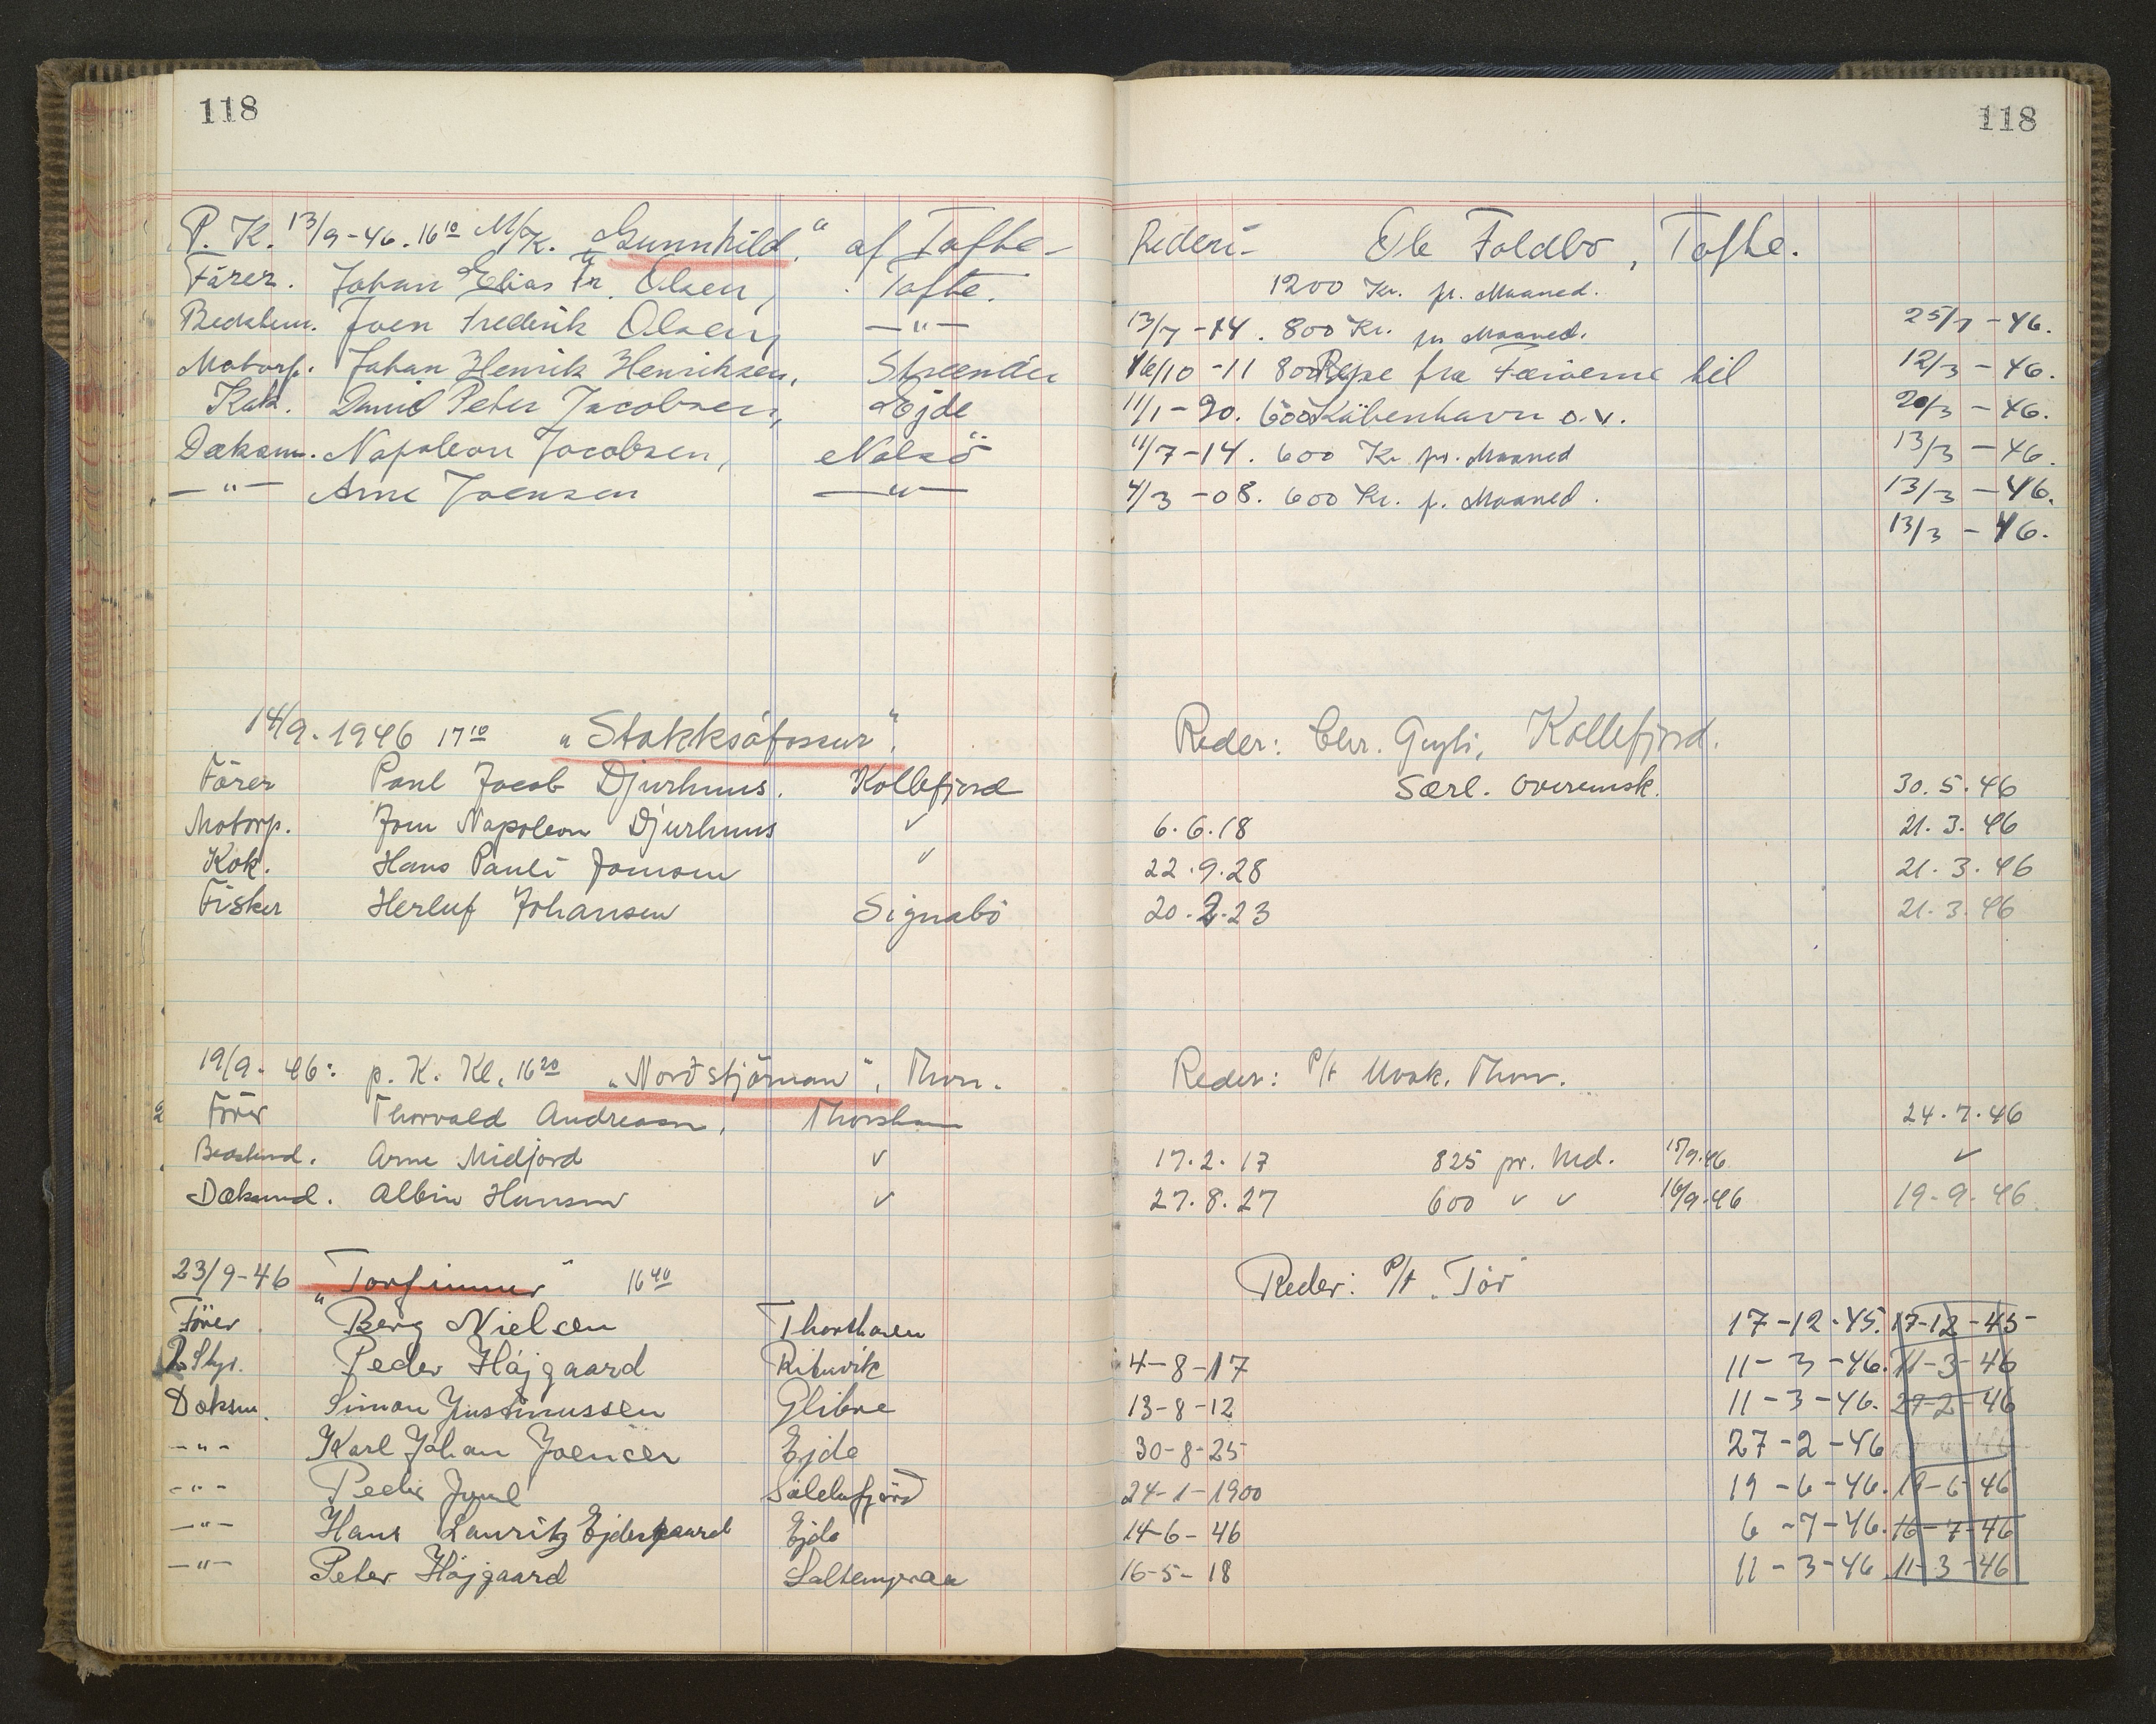 118
118
P. K. 13/9-46. 16 10 M/K. "Gunnhild." af Tofte-
Rederi- Ole Foldbo, Tofte.
Förer. Johan Elias Fr. Olsen, Tofte.
1200 Kr. pr. Maaned.
Bedstem. Joen Frederik Olsen, —"—
13/7-14. 800 Kr. pr Maaned.
25/7-46.
Motorp. Johan Henrik Henriksen,
16/10-11 800 Rejse fra Færöerne til
12/3-46.
Kok. David Peter Jacobsen, Ejde
11/1-20. 600 Köbenhavn o.v.
20/3-46.
Daksm. Napoleon Jacobsen, Nolsö
11/7-14. 600 Kr pr. Maaned
13/3-46.
—"— Arne Joensen —"—
4/3-08. 600 Kr. p. Maaned.
13/3-46.
13/3-46.
14/9-1946 17 10 "Stakksáfossur".
Reder: Chr. Kollefjord.
Förer Poul Jacob Djurhuus. Kollefjord
Særl. Overensk.
30.5.46
Motorp. Joen Napoleon Djurhuus ✓
6.6.18
21.3.46
Kok. Hans Pauli Joensen ✓
22.9.28
21.3.46
Fisker Herluf Johansen Signabö
20.2.23
21.3.46
19/9-46: p. K. Kl. 16 20 "Nordstjörnan", Thorv.
Reder: P/f Thorv.
Förer Thorvald Andreasen, Thorshavn
24.7.46
Bedstmd. Arne Midjord ✓
17.2.17 825 pr. Md. 15/9.46 ✓
Daksmd. Albin Hansen ✓
27.8.27 600 ✓ ✓ 16/9-46 19-9-46
23/9-46 "Torfinnur" 16 40
Reder: P/f. Tór
Förer Berg Nielsen Thorshavn
17-12-45. 17-12-45-
2 Styr. Peder Højgaard Rituvik
4-8-17 11-3-46. 11-3-46
Daksm. Simon Justinussen Glibre
13-8-12 11-3-46. 27-2-46
-"- Karl Johan Joensen Ejde
30-8-25 27-2-46
-"- Peder Juul
24-1-1900 19-6-46. 19-6-46
—"— Hans Lauritz Ejdesgaard Ejde
14-6-46 6-7-46. 16-7-46
—"— Peter Højgaard
16-5-18 11-3-46 11-3-46